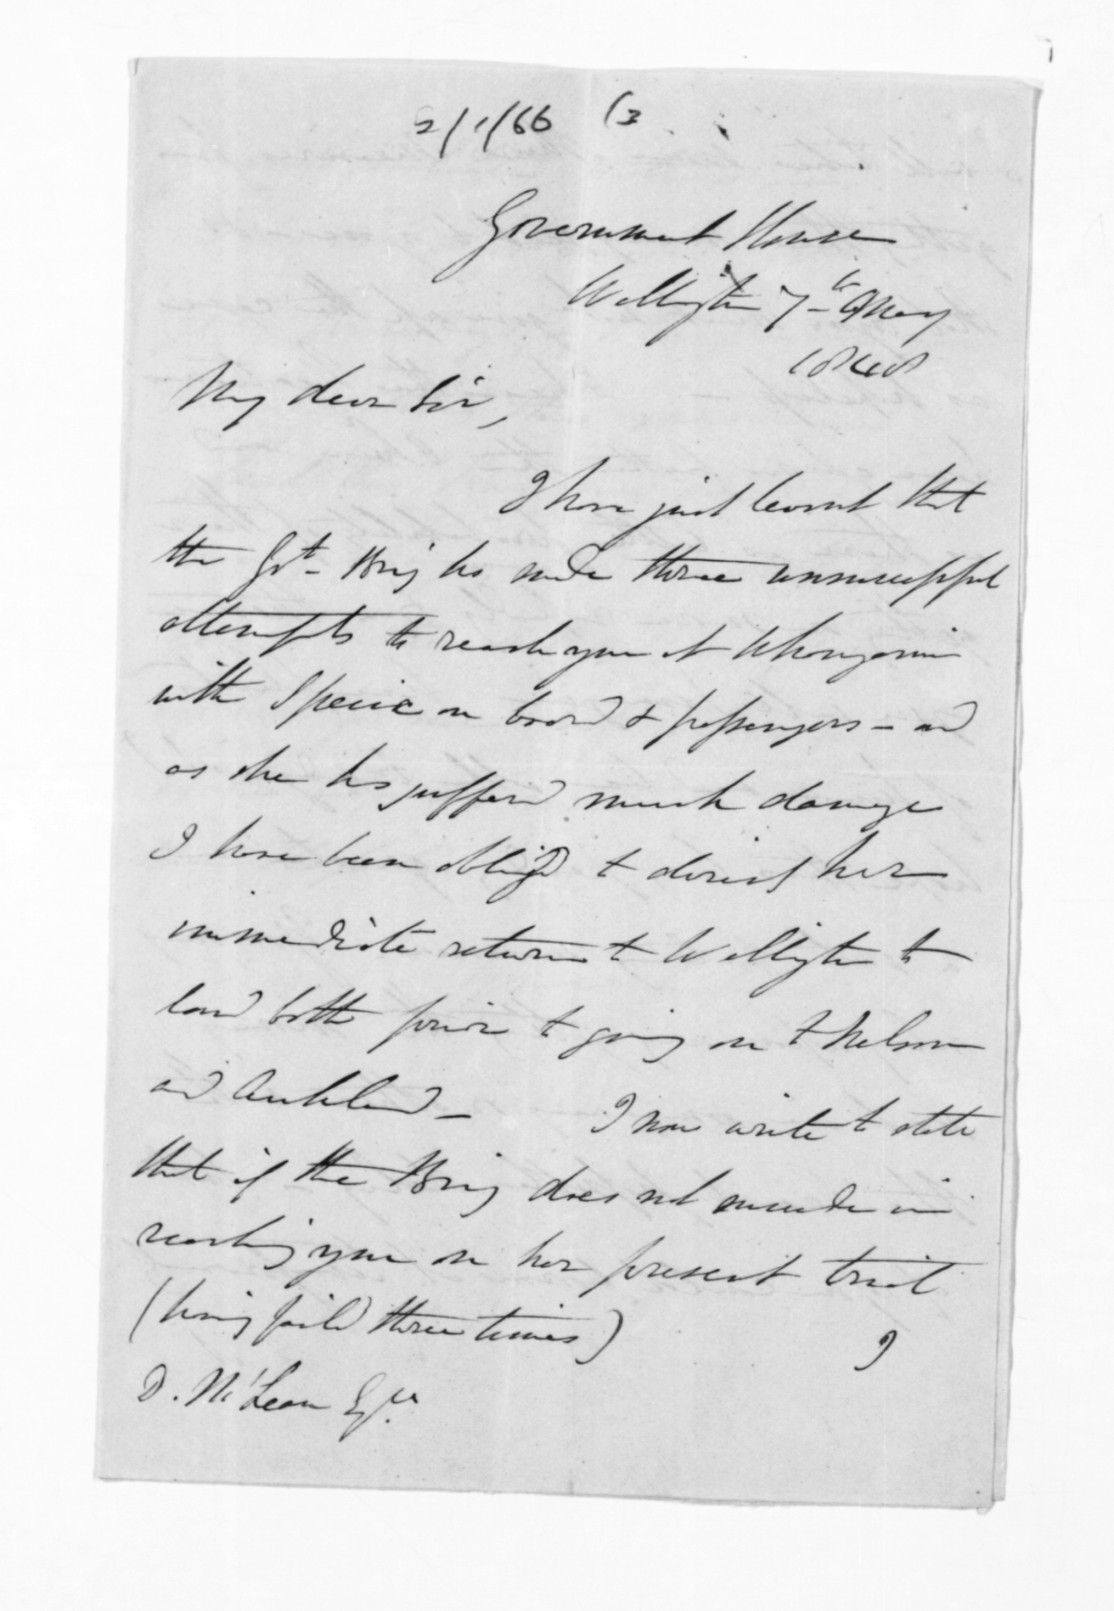 2/1/66 (3
Government House
Wellington 7th May
1848
My dear Sir,
I have just learnt that
the Gt. Brig has made three unsuccessful
attempts to reach you at Whanganui
with Specie on board & passengers - and
as she has suffered much damage
I have been obliged to direct her
immediate return to Wellington to
land both prior to going on to Nelson
and Auckland -   I now write to state
that if the Brig does not succeed in
reaching you on her present trial
(having failed three times)   I
D. McLean Esqre.